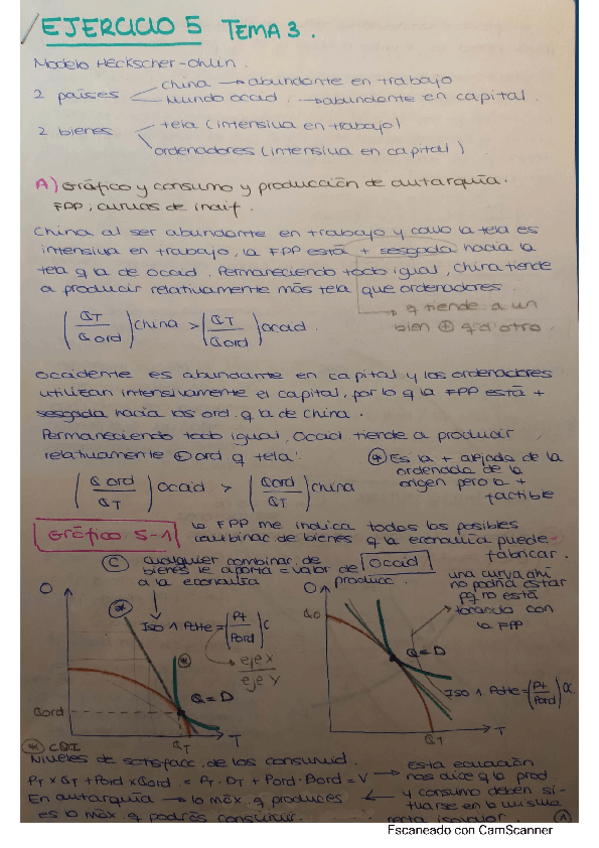 EJERCICIO 5 TEMA 3.
Modelo Heckscher-Ohlin.
2 países
china → abundante en trabajo
Mundo occid. → abundante en capital.
2 bienes
tela (intensiva en trabajo)
ordenadores (intensiva en capital)
A) Gráfico y consumo y producción de autarquía.
FPP, curvas de indif.
China al ser abundante en trabajo y como la tela es
intensiva en trabajo, la FPP está + sesgada hacia la
tela q la de occid. Permaneciendo todo igual, China tiende
a producir relativamente más tela que ordenadores
→ q tiende a un
bien ⊕ q a otro.
(QT/Qord) china > (QT/Qord) occid.
Occidente es abundante en capital y los ordenadores
utilizan intensivamente el capital, por lo q la FPP está +
sesgada hacia los ord. q la de China.
Permaneciendo todo igual, occid tiende a producir
relativamente ⊕ ord q tela:
(Qord/QT) occid > (Qord/QT) china
* Es la + alejada de la
ordenada de la
origen pero la +
factible
Gráfico 5-1
la FPP me indica todos los posibles
combinac de bienes q la economía puede
fabricar.
C cualquier combinac. de
bienes le aporta = valor de
a la economía
producc.
Occid
una curva ahí
no podría estar
pq no está
tangencia con
la FPP
O
Iso 1 Pdte = (Pt/Pord) C
eje X
eje Y
Q = D
Qord
QT
T
O
Qo
Q = D
Iso 1 Pdte = (Pt/Pord) α
QT
T
* CSI
Niveles de satisfacc. de los consumid.
PT × QT + Pord × Qord = PT · DT + Pord · Dord = V → esta ecuación
nos dice q la prod.
En autarquía → lo máx. q produces
es lo máx q podrás consumir.
y consumo deben si-
tuarse en la misma
recta isovalor.
Escaneado con CamScanner